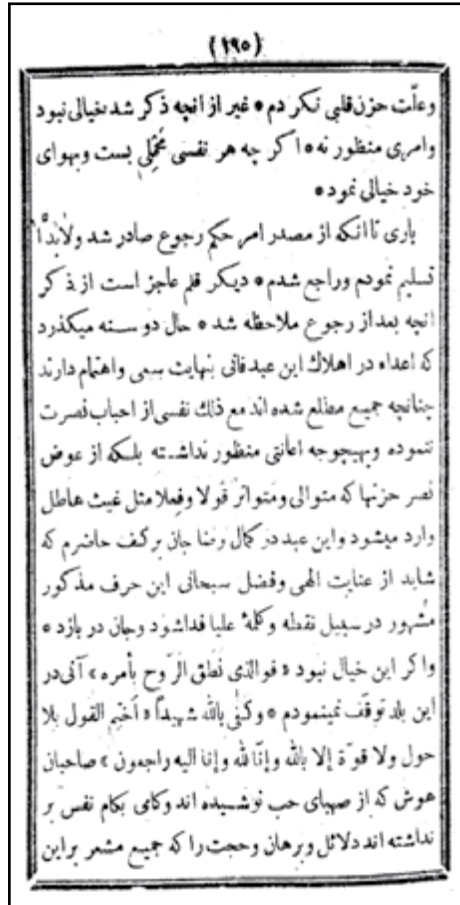 (۲۹۵)
وعلّت حزن قلبی نکر دم * غیر از انچه ذکر شد خیالی نبود
وامری منظور نه * اکر چه هر نفسی محملی بست وبهوای
خود خیالی نمود *
باری تا انکه از مصدر امر حکم رجوع صادر شد ولابداً
تسلیم نمودم وراجع شدم * دیکر قلم عاجز است از ذکر
انچه بعد از رجوع ملاحظه شد * حال دو سنه میکذرد
که اعداء در اهلاك این عبد فانی بنهایت سعی واهتمام دارند
چنانچه جمیع مطلع شده اند مع ذلك نفسی از احباب نصرت
ننموده وبهیچوجه اعانتی منظور نداشته بلکه از عوض
نصر حزنها که متوالی ومتواتر قولا وفعلا مثل غیث هاطل
وارد میشود واین عبد در کمال رضا جان بر کف حاضرم که
شاید از عنایت الهی وفضل سبحانی این حرف مذکور
مشهور در سبیل نقطه وکلمهٔ علیا فدا شود وجان در بازد *
واکر این خیال نبود « فوالذی نطق الرّوح بأمره » آنی در
این بلد توقّف نمینمودم * وکفی بالله شهیداً « أختم القول بلا
حول ولا قوّة إلا بالله وإنّا لله وإنا الیه راجعون » صاحبان
هوش که از صهبای حب نوشیده اند وکامی بکام نفس بر
نداشته اند دلائل وبرهان وحجت را که جمیع مشعر بر این